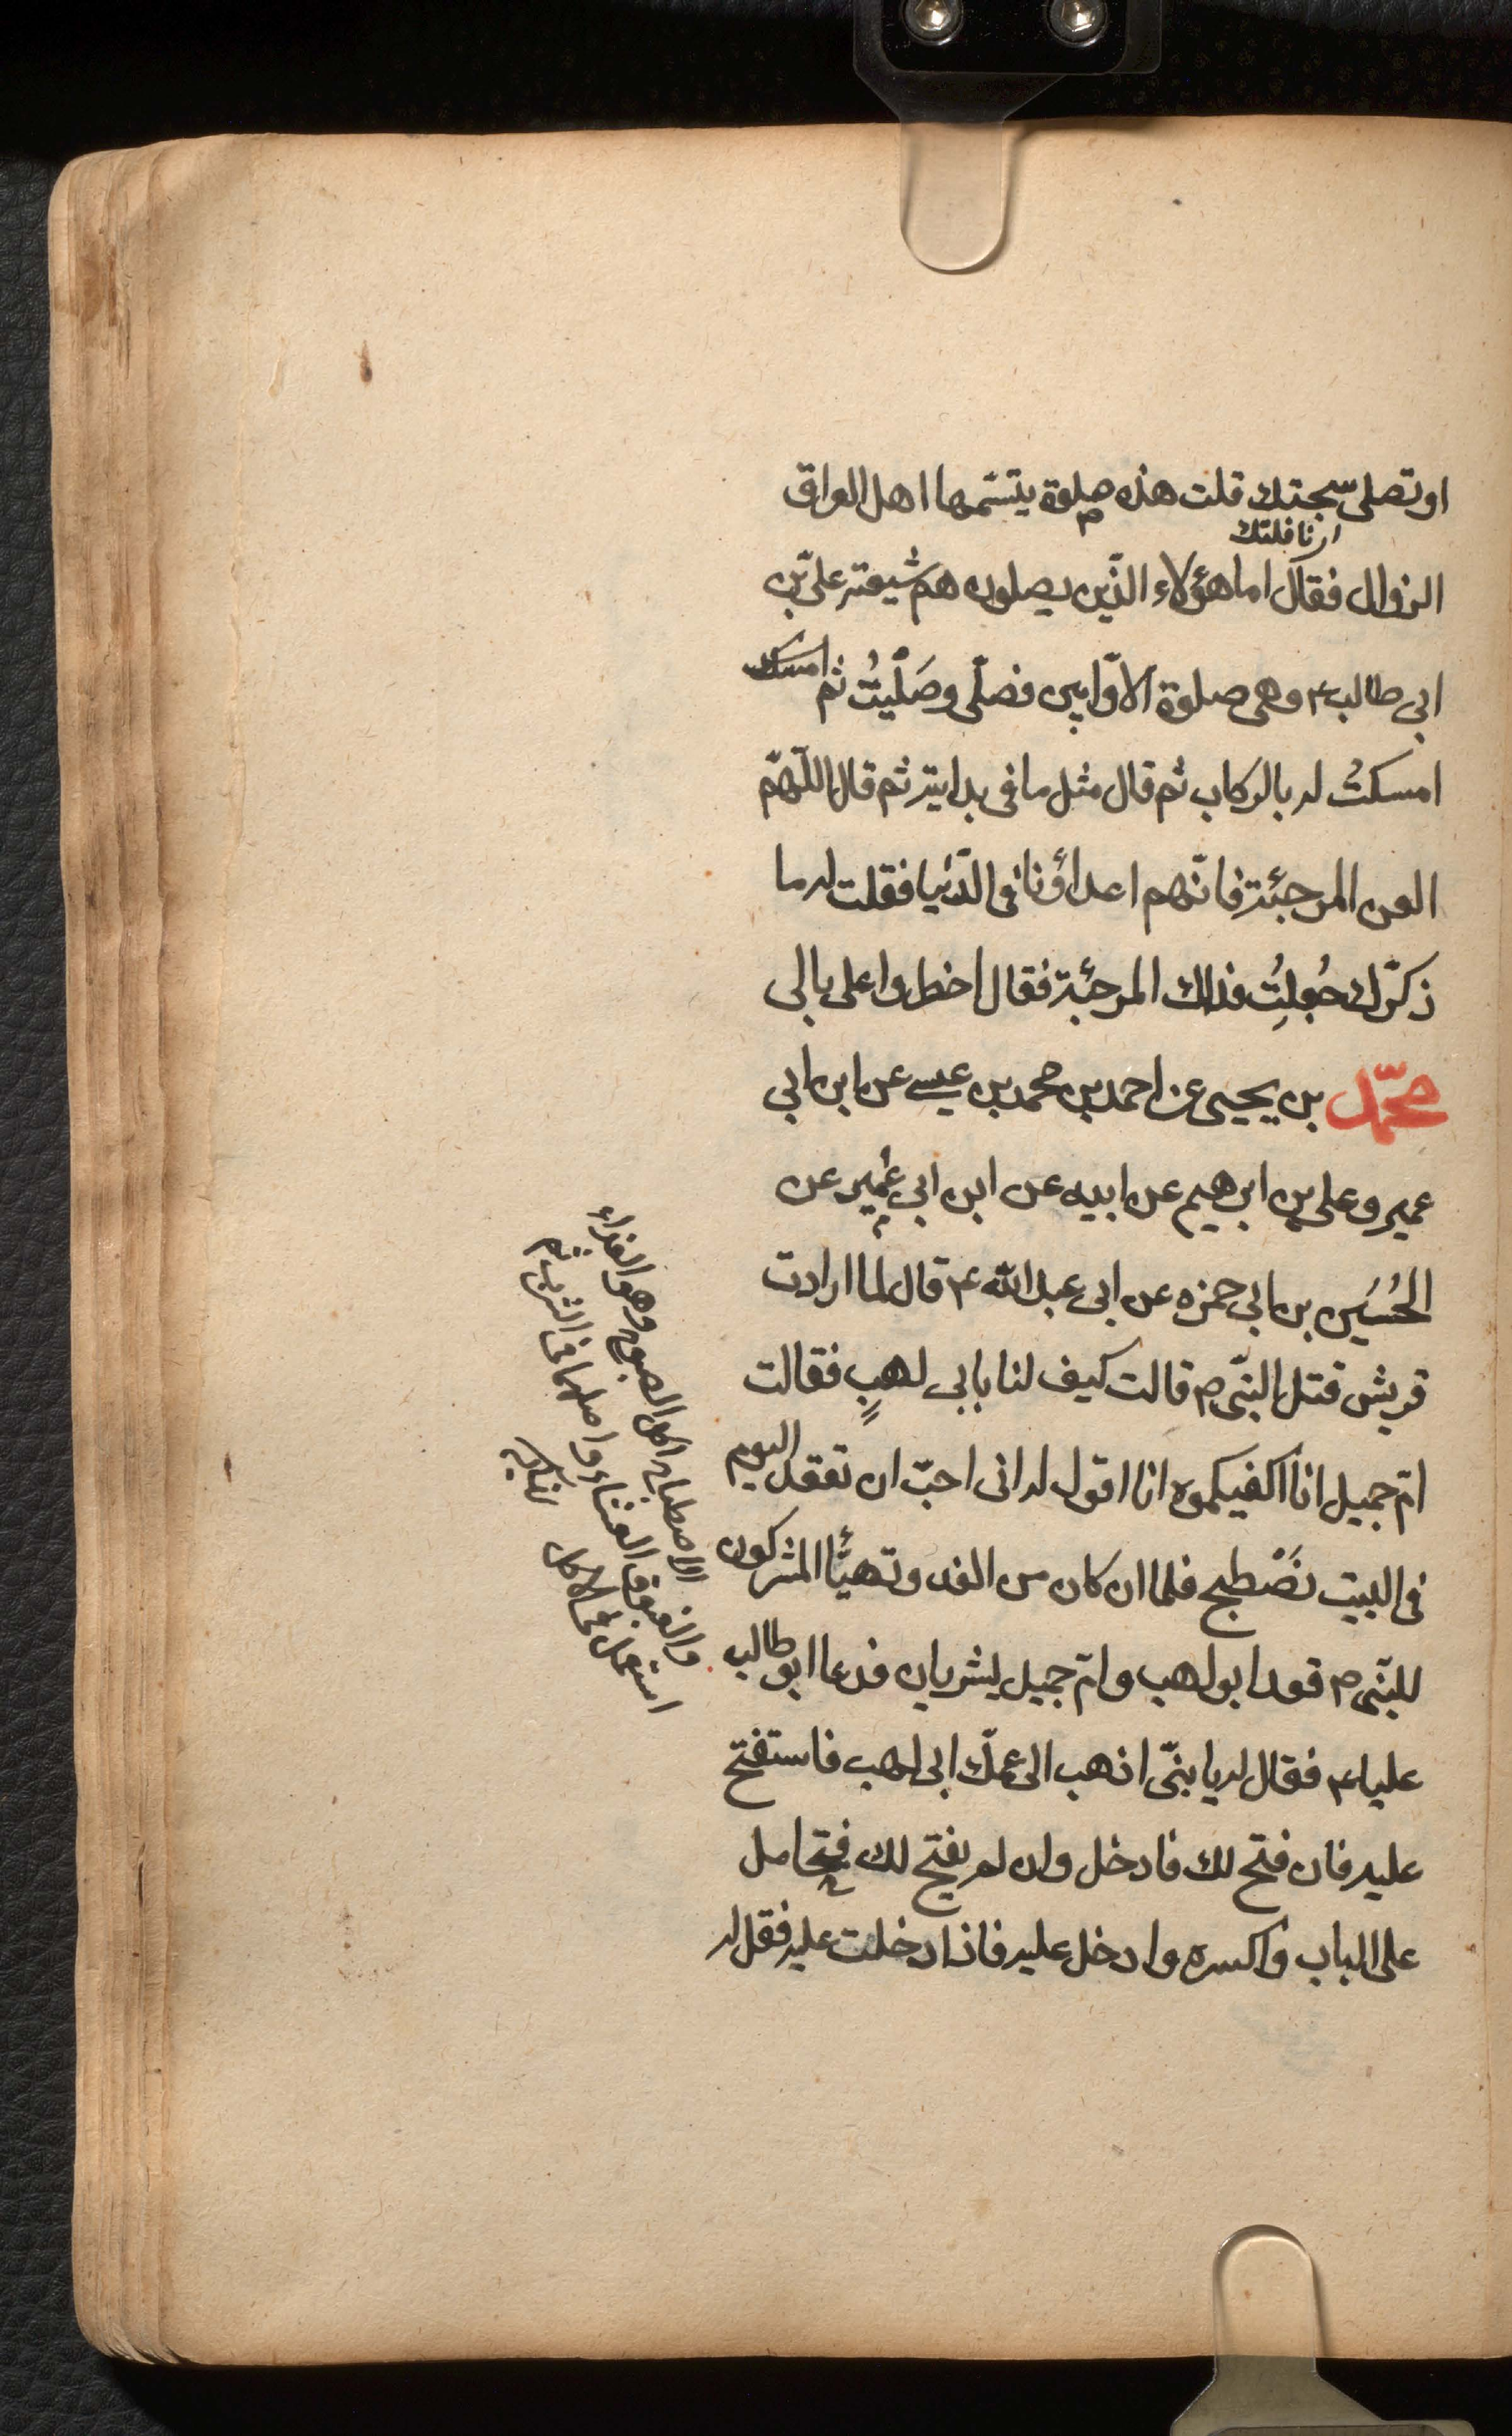 او تصلى سبحتك قلت هذه صلوة يتسمها اهل العراق
اى نافلتك
الزوال فقال اما هؤلاء الّذين يصلون هم شيعة علىّ بن
ابى طالب ع وهى صلوة الاوّابين فصلّى وصَلّيتُ ثم امسك
امسكتُ له بالركاب ثم قال مثل ما فى بدايته ثم قال اللّهمّ
العن المرجئة فانّهم اعداؤنا فى الدّنيا فقلت له ما
ذكّرك جُعلتُ فداك المرجئة فقال اخطروا على بالى
محمّد بن يحيى عن احمد بن محمد بن عيسى عن ابن ابى
عمير وعلى بن ابرهيم عن ابيه عن ابن ابى عُمير عن
الحُسَين بن ابى حمزه عن ابى عبد الله ع قال لما ارادت
قريش قتل النّبى ص قالت كيف لنا بابى لهبٍ فقالت
امّ جميل انا اكفيكموه انا اقول له انى احبّ ان تقعد اليوم
فى البيت نصْطبح فلما ان كان من الغد وتهيّأ المشركون
للنّبى ص قعد ابو لهب وامّ جميل يشربان فدعا ابو طالب
عليا ع فقال له يا بنىّ اذهب الى عمّك ابى لهب فاستفتح
عليه فان فتح لك فادخل وان لم يفتح لك فتحامل
على الباب واكسره وادخل عليه فاذا دخلت عليه فقل له
الاصطباح اكل الصبوح وهو الغداء
والغبوق العشاء واصلهما فى الشرب ثم
استعمل فى الاكل